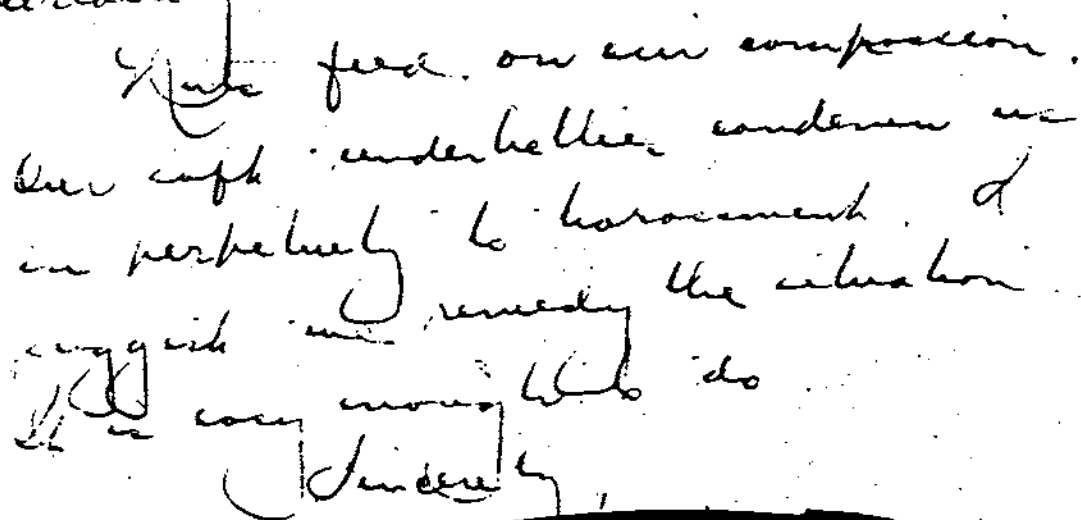 feed on our compassion.
Our soft underbellies condemn us
in perpetuity to harassment. I
suggest we remedy the situation
It is easy enough to do.
Sincerely,